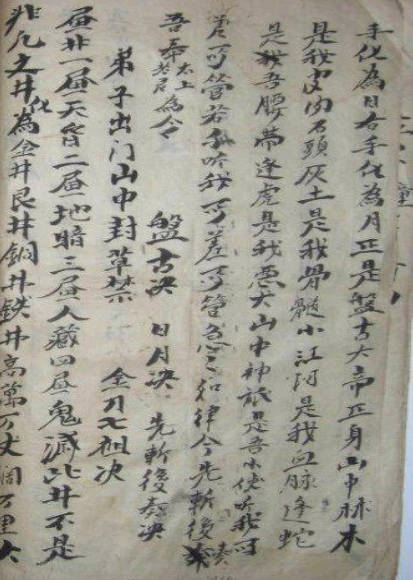 手化為日右手化為月正是盤古大帝正身山中林木
是我皮肉石頭灰土是我骨髓小江河是我血脉逢蛇
是我吾腰帶逢虎是我惡犬山中神祇是吾小使听我可
差可管若不听我可差可管急令如律令先斬後奏
吾奉太上老君為令
盤古决 日月决 先斬後奏决
弟子出门山中封草禁 金刀七祖决
昼非一昼天昏二昼地暗三昼人藏四昼鬼滅此井不是
非凡之井化為金井艮井銅井鉄井高萬万丈阔万里大